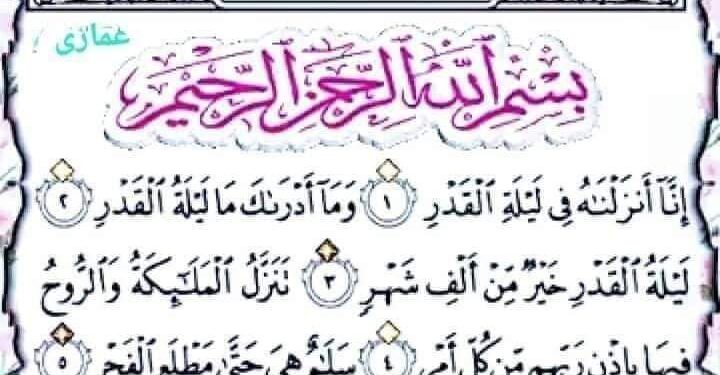 عمازى
بِسْمِ ٱللَّهِ ٱلرَّحْمَٰنِ ٱلرَّحِيمِ
إِنَّآ أَنزَلْنَٰهُ فِى لَيْلَةِ ٱلْقَدْرِ ١ وَمَآ أَدْرَىٰكَ مَا لَيْلَةُ ٱلْقَدْرِ ٢
لَيْلَةُ ٱلْقَدْرِ خَيْرٌ مِّنْ أَلْفِ شَهْرٍ ٣ تَنَزَّلُ ٱلْمَلَٰٓئِكَةُ وَٱلرُّوحُ
فِيهَا بِإِذْنِ رَبِّهِم مِّن كُلِّ أَمْرٍ ٤ سَلَٰمٌ هِىَ حَتَّىٰ مَطْلَعِ ٱلْفَجْرِ ٥